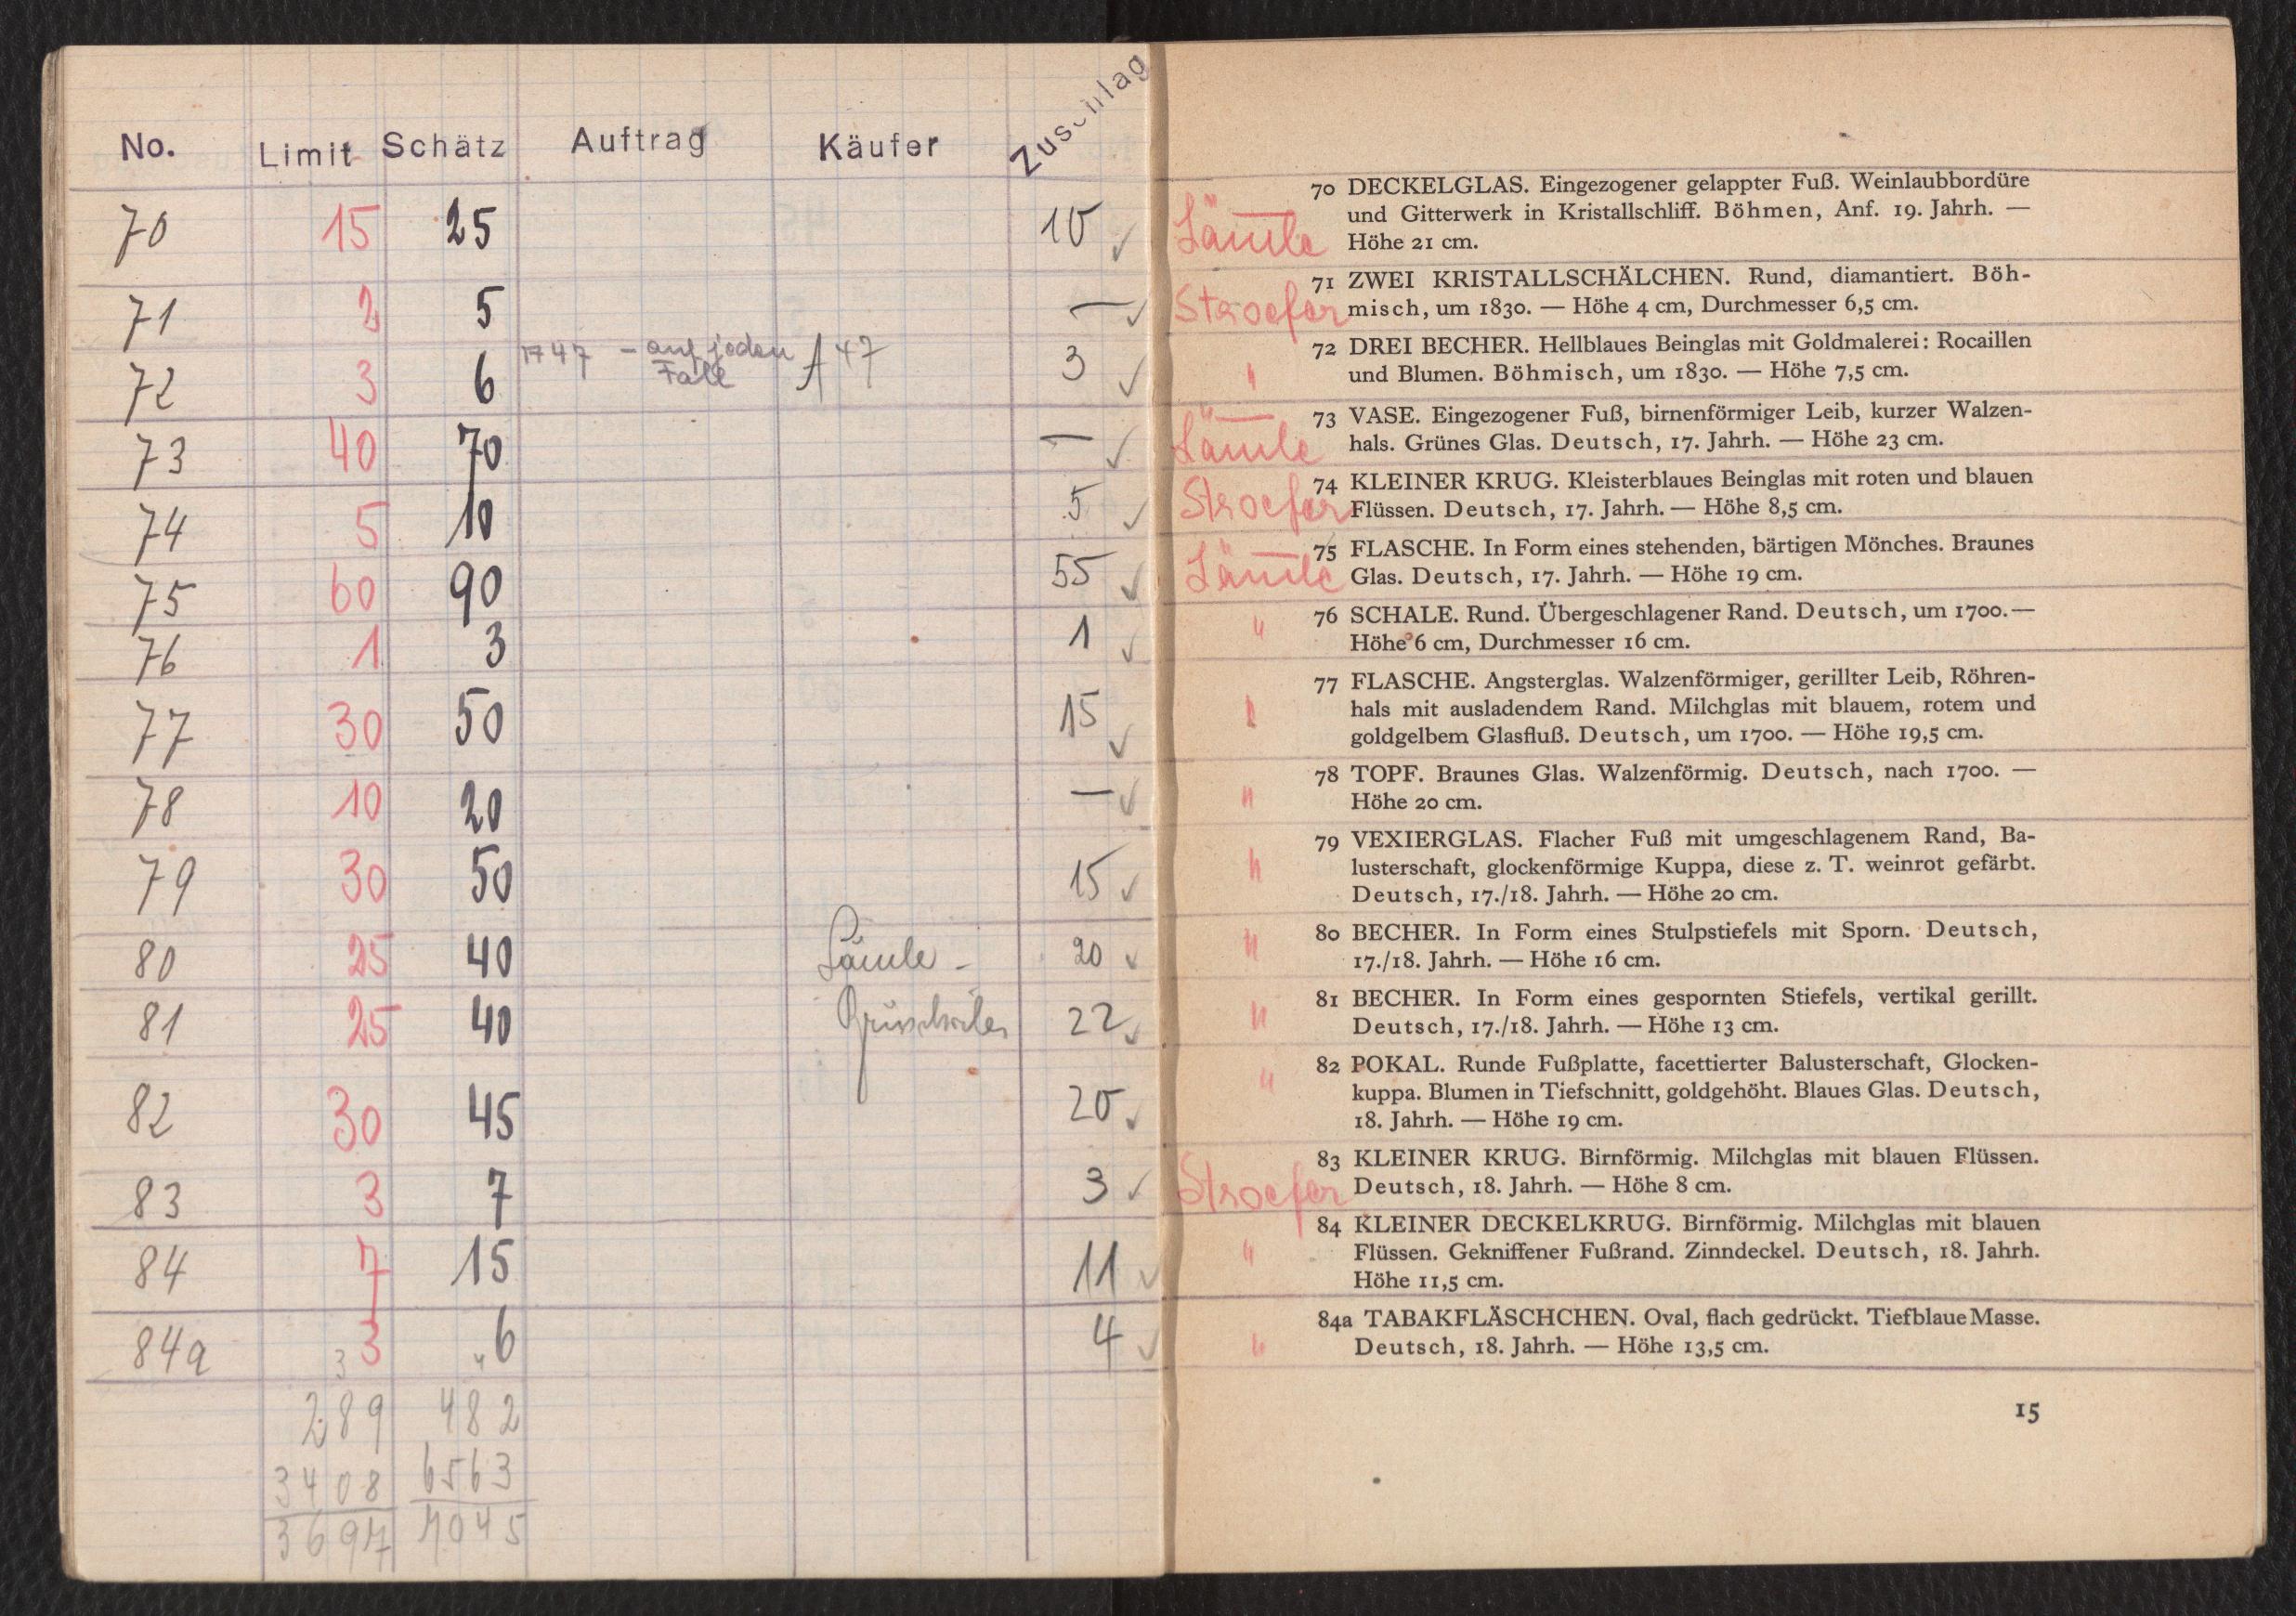 No. Limit Schätz Auftrag Käufer Zuschlag
70 15 25 10 ✓
71 2 5 — ✓
72 3 6 1747 – auf jeden Fall A 47 3 ✓
73 40 70 — ✓
74 5 10 5 ✓
75 60 90 55 ✓
76 1 3 1 ✓
77 30 50 15 ✓
78 10 20 — ✓
79 30 50 15 ✓
80 25 40 Lämle – 20 ✓
81 25 40 22 ✓
82 30 45 20 ✓
83 3 7 3 ✓
84 7 15 11 ✓
84a 3 6 4 ✓
3 4
289 482
3408 6563
3697 7045
Lämle
70 DECKELGLAS. Eingezogener gelappter Fuß. Weinlaubbordüre
und Gitterwerk in Kristallschliff. Böhmen, Anf. 19. Jahrh. —
Höhe 21 cm.
Stroefer
71 ZWEI KRISTALLSCHÄLCHEN. Rund, diamantiert. Böh-
misch, um 1830. — Höhe 4 cm, Durchmesser 6,5 cm.
"
72 DREI BECHER. Hellblaues Beinglas mit Goldmalerei: Rocaillen
und Blumen. Böhmisch, um 1830. — Höhe 7,5 cm.
Lämle
73 VASE. Eingezogener Fuß, birnenförmiger Leib, kurzer Walzen-
hals. Grünes Glas. Deutsch, 17. Jahrh. — Höhe 23 cm.
Stroefer
74 KLEINER KRUG. Kleisterblaues Beinglas mit roten und blauen
Flüssen. Deutsch, 17. Jahrh. — Höhe 8,5 cm.
Lämle
75 FLASCHE. In Form eines stehenden, bärtigen Mönches. Braunes
Glas. Deutsch, 17. Jahrh. — Höhe 19 cm.
"
76 SCHALE. Rund. Übergeschlagener Rand. Deutsch, um 1700. —
Höhe 6 cm, Durchmesser 16 cm.
"
77 FLASCHE. Angsterglas. Walzenförmiger, gerillter Leib, Röhren-
hals mit ausladendem Rand. Milchglas mit blauem, rotem und
goldgelbem Glasfluß. Deutsch, um 1700. — Höhe 19,5 cm.
"
78 TOPF. Braunes Glas. Walzenförmig. Deutsch, nach 1700. —
Höhe 20 cm.
"
79 VEXIERGLAS. Flacher Fuß mit umgeschlagenem Rand, Ba-
lusterschaft, glockenförmige Kuppa, diese z. T. weinrot gefärbt.
Deutsch, 17./18. Jahrh. — Höhe 20 cm.
"
80 BECHER. In Form eines Stulpstiefels mit Sporn. Deutsch,
17./18. Jahrh. — Höhe 16 cm.
"
81 BECHER. In Form eines gespornten Stiefels, vertikal gerillt.
Deutsch, 17./18. Jahrh. — Höhe 13 cm.
"
82 POKAL. Runde Fußplatte, facettierter Balusterschaft, Glocken-
kuppa. Blumen in Tiefschnitt, goldgehöht. Blaues Glas. Deutsch,
18. Jahrh. — Höhe 19 cm.
Stroefer
83 KLEINER KRUG. Birnförmig. Milchglas mit blauen Flüssen.
Deutsch, 18. Jahrh. — Höhe 8 cm.
"
84 KLEINER DECKELKRUG. Birnförmig. Milchglas mit blauen
Flüssen. Gekniffener Fußrand. Zinndeckel. Deutsch, 18. Jahrh.
Höhe 11,5 cm.
"
84a TABAKFLÄSCHCHEN. Oval, flach gedrückt. Tiefblaue Masse.
Deutsch, 18. Jahrh. — Höhe 13,5 cm.
15